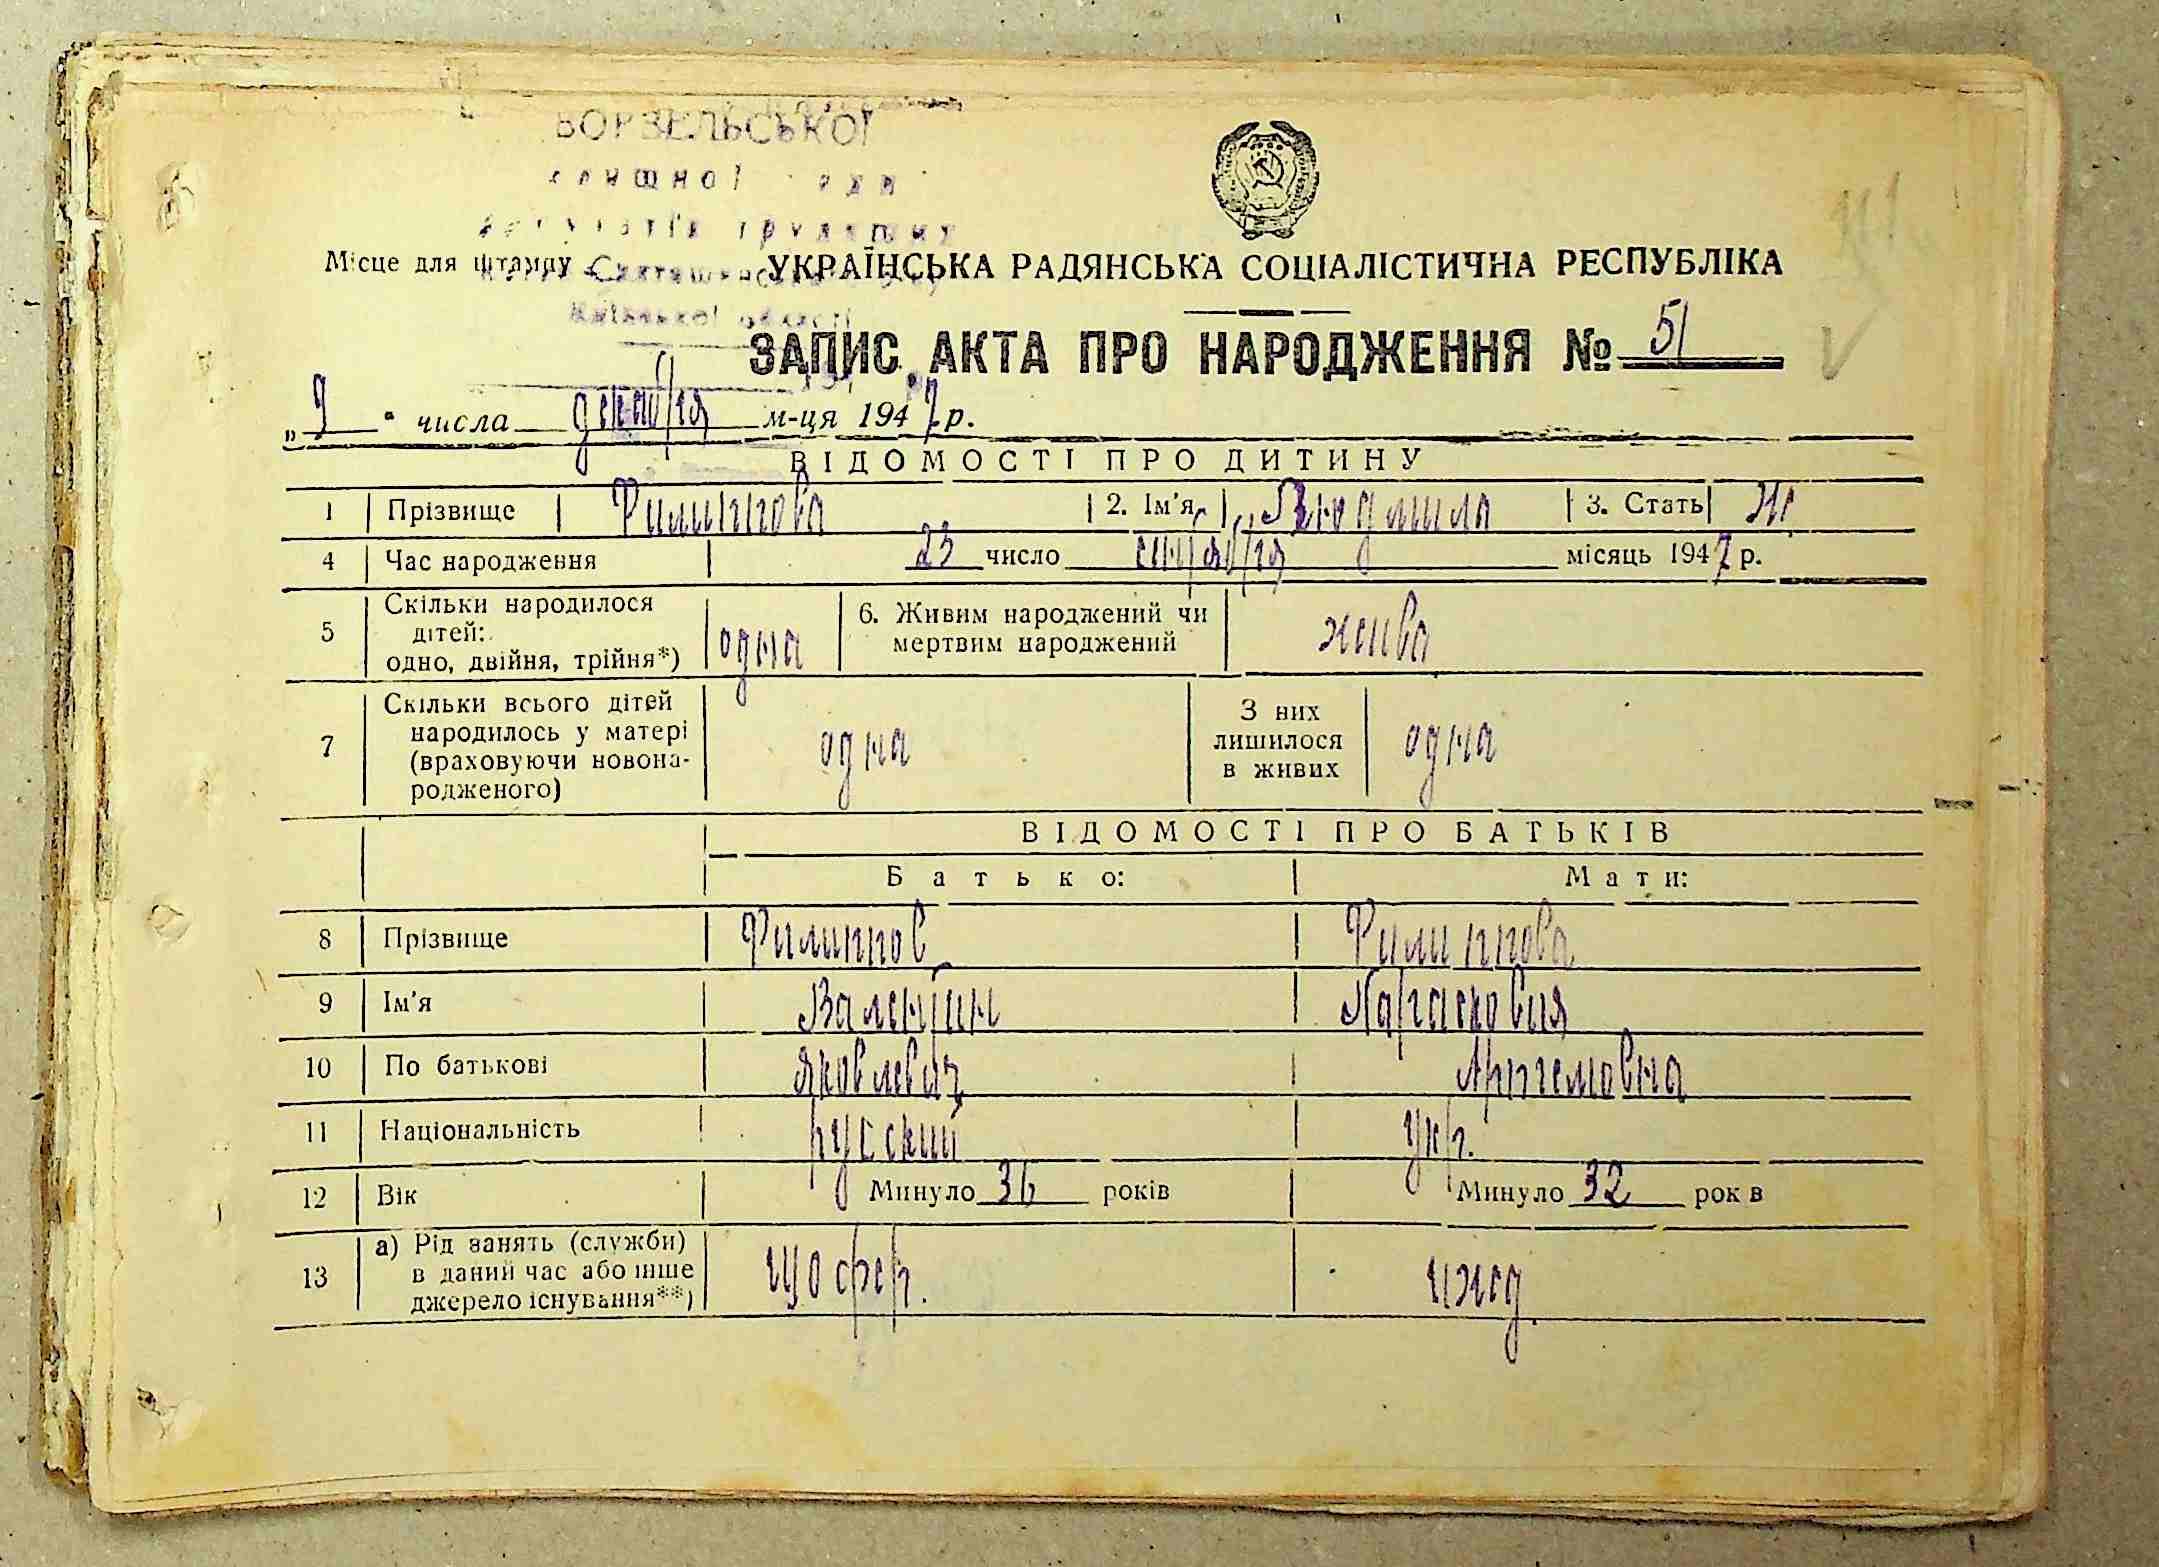 БОРЗЕЛЬСЬКОЇ
Місце для штампу
УКРАЇНСЬКА РАДЯНСЬКА СОЦІАЛІСТИЧНА РЕСПУБЛІКА
Київської області
ЗАПИС АКТА ПРО НАРОДЖЕННЯ № 51
„ 9 " числа декабря м-ця 1947 р.
ВІДОМОСТІ ПРО ДИТИНУ
1 Прізвище Филиппова 2. Ім'я Людмила 3. Стать ж.
4 Час народження 23 число сентября місяць 1947 р.
5 Скільки народилося дітей: одно, двійня, трійня*) одна 6. Живим народжений чи мертвим народжений жива
7 Скільки всього дітей народилось у матері (враховуючи новонародженого) одна З них лишилося в живих одна
ВІДОМОСТІ ПРО БАТЬКІВ
Батько: Мати:
8 Прізвище Филиппов Филиппова
9 Ім'я Валентин Парасковия
10 По батькові Яковлевич Артемовна
11 Національність русский укр.
12 Вік Минуло 36 років Минуло 32 рок в
13 а) Рід занять (служби) в даний час або інше джерело існування**) шофер. ижд.